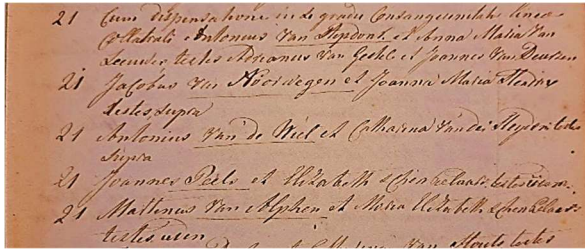 21 Cum dispensatione in 2do gradu Consanguinitatis linea
Collatrali Antonius Van Heydonk et Anna Maria Van
Leeuwe testes Adrianus Van Gestel et Joannes Van Deursen
21 Jacobus Van Noorwegen et Joanna Maria
testes supra
21 Antonius Van de Wiel et Catharina Van der Heyden testes
supra
21 Joannes Peels et Elizabeth Schenkelaars testes iidem
21 Martinus Van Alphen et Maria Elizabeth Schenkelaars
testes iidem
et Van testes